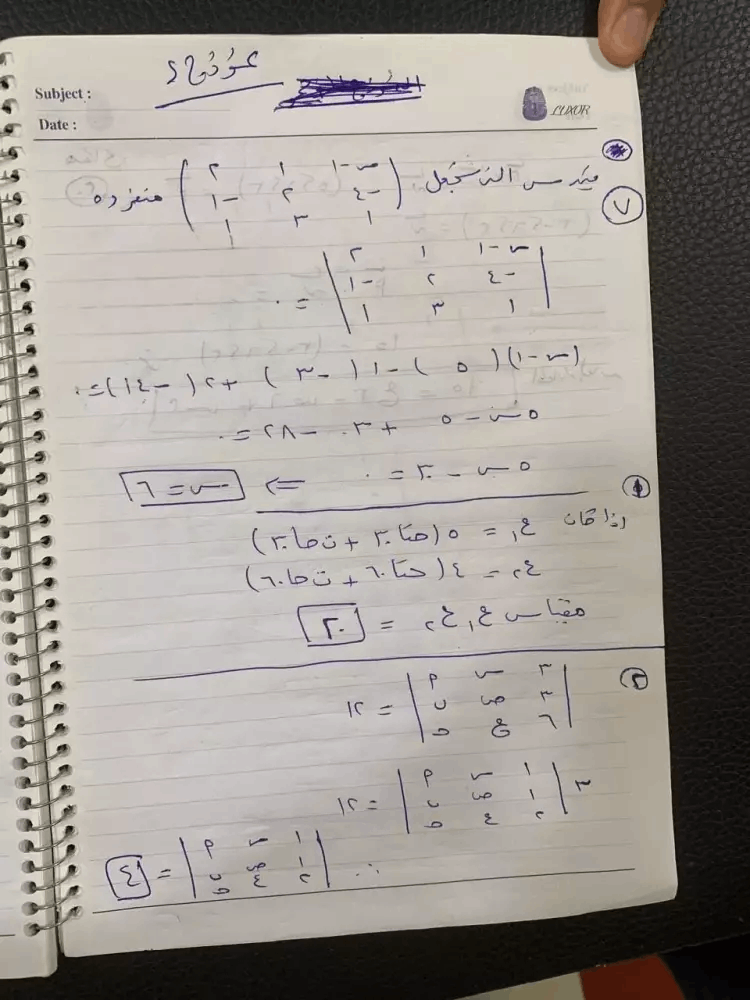 Subject :
Date :
LUXOR
٧
قيمة س التى تجعل
(س-١ ١ ٢
-٤ ٢ -١
١ ٣ ١) منفرده
|س-١ ١ ٢
-٤ ٢ -١
١ ٣ ١| = ٠
(س-١)( ٥ ) -١( -٣ ) +٢( -١٤)=٠
٥س - ٥ + ٣ - ٢٨ = ٠
٥س - ٣٠ = ٠ ⇐ س = ٦
١
اذا كان ع١ = ٥(حتا٣٠ + ت حا٣٠)
ع٢ = ٤(حتا٦٠ + ت حا٦٠)
مقياس ع١ ع٢ = ٢٠
٢
|٣ س م
٣ ص ن
٦ ع ه| = ١٢
٣ |١ س م
١ ص ن
٢ ع ه| = ١٢
∴ |١ س م
١ ص ن
٢ ع ه| = ٤